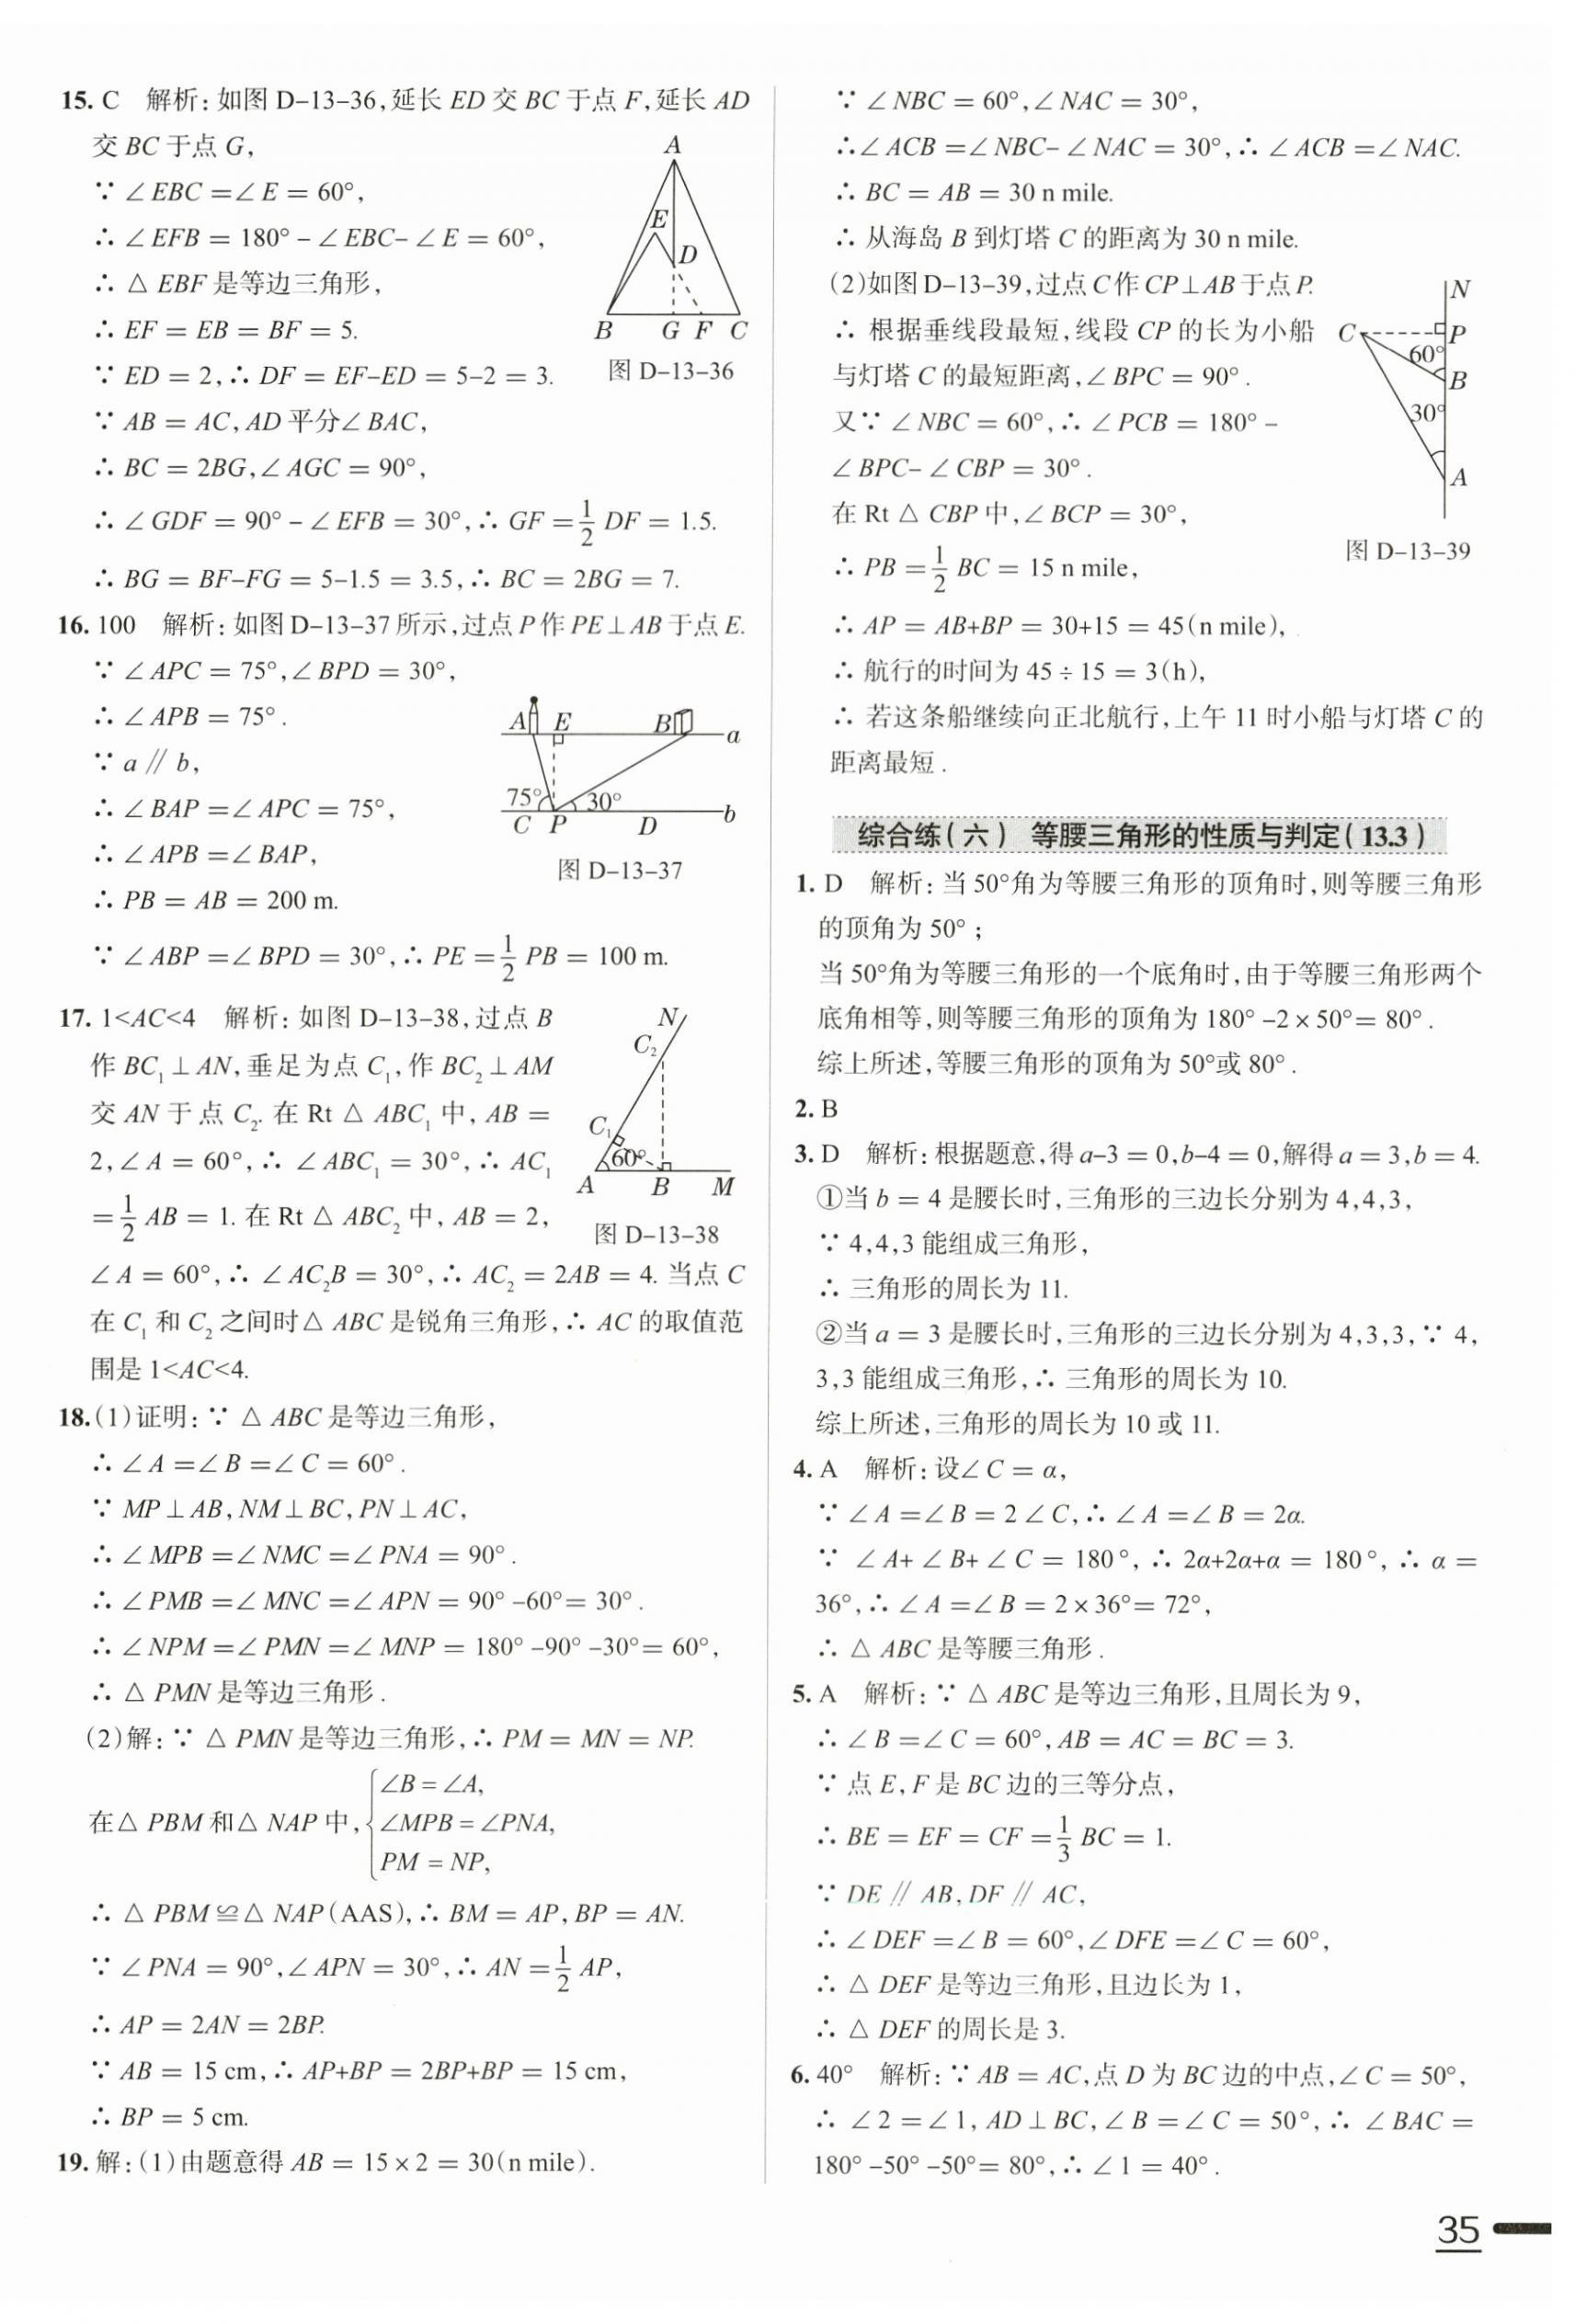 15. C 解析：如图 D–13–36，延长 ED 交 BC 于点 F，延长 AD
交 BC 于点 G，
∵ ∠EBC = ∠E = 60°，
∴ ∠EFB = 180° – ∠EBC– ∠E = 60°，
∴ △EBF 是等边三角形，
∴ EF = EB = BF = 5.
∵ ED = 2，∴ DF = EF–ED = 5–2 = 3.
∵ AB = AC，AD 平分∠BAC，
∴ BC = 2BG，∠AGC = 90°，
∴ ∠GDF = 90° – ∠EFB = 30°，∴ GF = 1/2 DF = 1.5.
∴ BG = BF–FG = 5–1.5 = 3.5，∴ BC = 2BG = 7.
A
E
D
B G F C
图 D–13–36
16. 100 解析：如图 D–13–37 所示，过点 P 作 PE⊥AB 于点 E.
∵ ∠APC = 75°，∠BPD = 30°，
∴ ∠APB = 75°.
∵ a∥b，
∴ ∠BAP = ∠APC = 75°，
∴ ∠APB = ∠BAP，
∴ PB = AB = 200 m.
∵ ∠ABP = ∠BPD = 30°，∴ PE = 1/2 PB = 100 m.
A E B a
75° 30° b
C P D
图 D–13–37
17. 1<AC<4 解析：如图 D–13–38，过点 B
作 BC₁⊥AN，垂足为点 C₁，作 BC₂⊥AM
交 AN 于点 C₂. 在 Rt△ABC₁ 中，AB =
2，∠A = 60°，∴ ∠ABC₁ = 30°，∴ AC₁
= 1/2 AB = 1. 在 Rt△ABC₂ 中，AB = 2，
∠A = 60°，∴ ∠AC₂B = 30°，∴ AC₂ = 2AB = 4. 当点 C
在 C₁ 和 C₂ 之间时△ABC 是锐角三角形，∴ AC 的取值范
围是 1<AC<4.
N
C₂
C₁
60°
A B M
图 D–13–38
18. (1)证明：∵ △ABC 是等边三角形，
∴ ∠A = ∠B = ∠C = 60°.
∵ MP⊥AB，NM⊥BC，PN⊥AC，
∴ ∠MPB = ∠NMC = ∠PNA = 90°.
∴ ∠PMB = ∠MNC = ∠APN = 90° –60°= 30°.
∴ ∠NPM = ∠PMN = ∠MNP = 180° –90° –30°= 60°，
∴ △PMN 是等边三角形.
(2)解：∵ △PMN 是等边三角形，∴ PM = MN = NP.
∠B = ∠A,
在△PBM 和△NAP 中，{ ∠MPB = ∠PNA,
PM = NP,
∴ △PBM≌△NAP(AAS)，∴ BM = AP，BP = AN.
∵ ∠PNA = 90°，∠APN = 30°，∴ AN = 1/2 AP，
∴ AP = 2AN = 2BP.
∵ AB = 15 cm，∴ AP+BP = 2BP+BP = 15 cm，
∴ BP = 5 cm.
19. 解：(1)由题意得 AB = 15×2 = 30(n mile).
∵ ∠NBC = 60°，∠NAC = 30°，
∴∠ACB = ∠NBC– ∠NAC = 30°，∴ ∠ACB = ∠NAC.
∴ BC = AB = 30 n mile.
∴ 从海岛 B 到灯塔 C 的距离为 30 n mile.
(2)如图 D–13–39，过点 C 作 CP⊥AB 于点 P.
∴ 根据垂线段最短，线段 CP 的长为小船
与灯塔 C 的最短距离，∠BPC = 90°.
又∵ ∠NBC = 60°，∴ ∠PCB = 180° –
∠BPC– ∠CBP = 30°.
在 Rt△CBP 中，∠BCP = 30°，
∴ PB = 1/2 BC = 15 n mile，
∴ AP = AB+BP = 30+15 = 45(n mile)，
∴ 航行的时间为 45÷15 = 3(h)，
∴ 若这条船继续向正北航行，上午 11 时小船与灯塔 C 的
距离最短.
N
C P
60°
B
30°
A
图 D–13–39
综合练(六) 等腰三角形的性质与判定(13.3)
1. D 解析：当 50°角为等腰三角形的顶角时，则等腰三角形
的顶角为 50°；
当 50°角为等腰三角形的一个底角时，由于等腰三角形两个
底角相等，则等腰三角形的顶角为 180° –2×50°= 80°.
综上所述，等腰三角形的顶角为 50°或 80°.
2. B
3. D 解析：根据题意，得 a–3 = 0，b–4 = 0，解得 a = 3，b = 4.
①当 b = 4 是腰长时，三角形的三边长分别为 4，4，3，
∵ 4，4，3 能组成三角形，
∴ 三角形的周长为 11.
②当 a = 3 是腰长时，三角形的三边长分别为 4，3，3，∵ 4，
3，3 能组成三角形，∴ 三角形的周长为 10.
综上所述，三角形的周长为 10 或 11.
4. A 解析：设∠C = α，
∵ ∠A = ∠B = 2∠C，∴ ∠A = ∠B = 2α.
∵ ∠A+ ∠B+ ∠C = 180°，∴ 2α+2α+α = 180°，∴ α =
36°，∴ ∠A = ∠B = 2×36°= 72°，
∴ △ABC 是等腰三角形.
5. A 解析：∵ △ABC 是等边三角形，且周长为 9，
∴ ∠B = ∠C = 60°，AB = AC = BC = 3.
∵ 点 E，F 是 BC 边的三等分点，
∴ BE = EF = CF = 1/3 BC = 1.
∵ DE∥AB，DF∥AC，
∴ ∠DEF = ∠B = 60°，∠DFE = ∠C = 60°，
∴ △DEF 是等边三角形，且边长为 1，
∴ △DEF 的周长是 3.
6. 40° 解析：∵ AB = AC，点 D 为 BC 边的中点，∠C = 50°，
∴ ∠2 = ∠1，AD⊥BC，∠B = ∠C = 50°，∴ ∠BAC =
180° –50° –50°= 80°，∴ ∠1 = 40°.
35